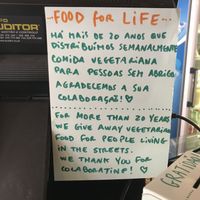 FOOD for LiFE
HÁ MAIS DE 20 ANOS QUE
DISTRIBUIMOS SEMANALMENTE
COMIDA VEGETARIANA
PARA PESSOAS SEM ABRIGO
AGRADECEMOS A SUA
COLABORAÇÃO!
FOR MORE THAN 20 YEARS
WE GIVE AWAY VEGETARIAN
FOOD FOR PEOPLE LIVING
IN THE STREETS.
WE THANK YOU FOR
COLABORATING!
UDITOR